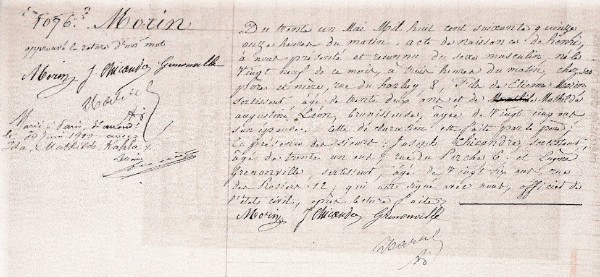 1076. Morin
approuvé la rature d'un mot
Morin J. Chicandre Grenonville
Marié à Paris,
le 1910 avec
Ida, Mathilde Kapla
Du trente un Mai Mil huit cent soixante quinze
onze heures du matin. acte de naissance de
à nous présenté et reconnu du sexe masculin, né le
vingt neuf de ce mois, à trois heures du matin, chez ses
père et mère, rue du harlay 8, fils de Etienne Morin
sertisseur, âgé de trente deux ans et de Mathilde
augustine Léon, brunisseuse, âgée de vingt cinq ans
son épouse. cette déclaration est faite par le père
en présence des sieurs: Joseph Chicandre, sertisseur,
âgé de trente un ans, rue du Perche 6. et Eugène
Grenonville, sertisseur, âgé de vingt six ans rue
des Rosiers 12, qui ont signé avec nous, officier de
l'état civil, après lecture faite.
Morin J Chicandre Grenonville